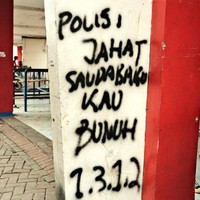 POLISI
JAHAT
SAUDARAKU
KAU
BUNUH
1.3.1.2